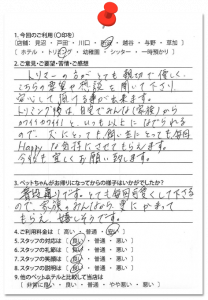 1.今回のご利用（○印を）
（店舗：見沼 ・ 戸田 ・ 川口 ・ ・ 越谷 ・ 与野 ・ 草加 ）
（ ホテル ・ トリミング ・ 幼稚園 ・ シッター ・ 一時預かり ）
2.ご意見・ご要望・苦情・ご感想
トリマーの方がとても親切で優しく、
こちらの要望や相談も聞いて下さり
安心して預ける事が出来ます。
トリミング後は自宅でみんな（家族）から
カワイイカワイイと、いつも以上になでられる
ので、犬にとっても飼い主にとっても毎回
Happyな気持にさせてもらえます。
今後も宜しくお願い致します。
3.ペットちゃんがお帰りになってからの様子はいかがでしたか？
普段通りです。とても毎回可愛くして下さる
ので、家族みんなから更にかまって
もらえ、嬉しそうです。
4.ご利用料金は（ 高い ・ 普通 ・ 安い ）
5.スタッフの対応は（ 良い ・ 普通 ・ 悪い ）
6.スタッフの礼節は（ 良い ・ 普通 ・ 悪い ）
7.スタッフの笑顔は（ 良い ・ 普通 ・ 悪い ）
8.スタッフの説明は（ 良い ・ 普通 ・ 悪い ）
9.他のペットホテルと比較して当店は
（ 非常に良い ・ 良い ・ 普通 ・ やや悪い ・ 悪い ）